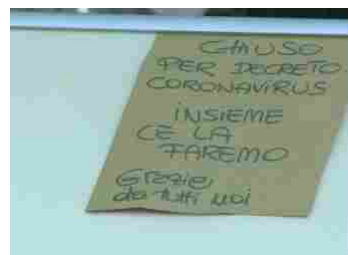 CHIUSO
PER DECRETO
CORONAVIRUS
INSIEME
CE LA
FAREMO
Grazie
da tutti noi